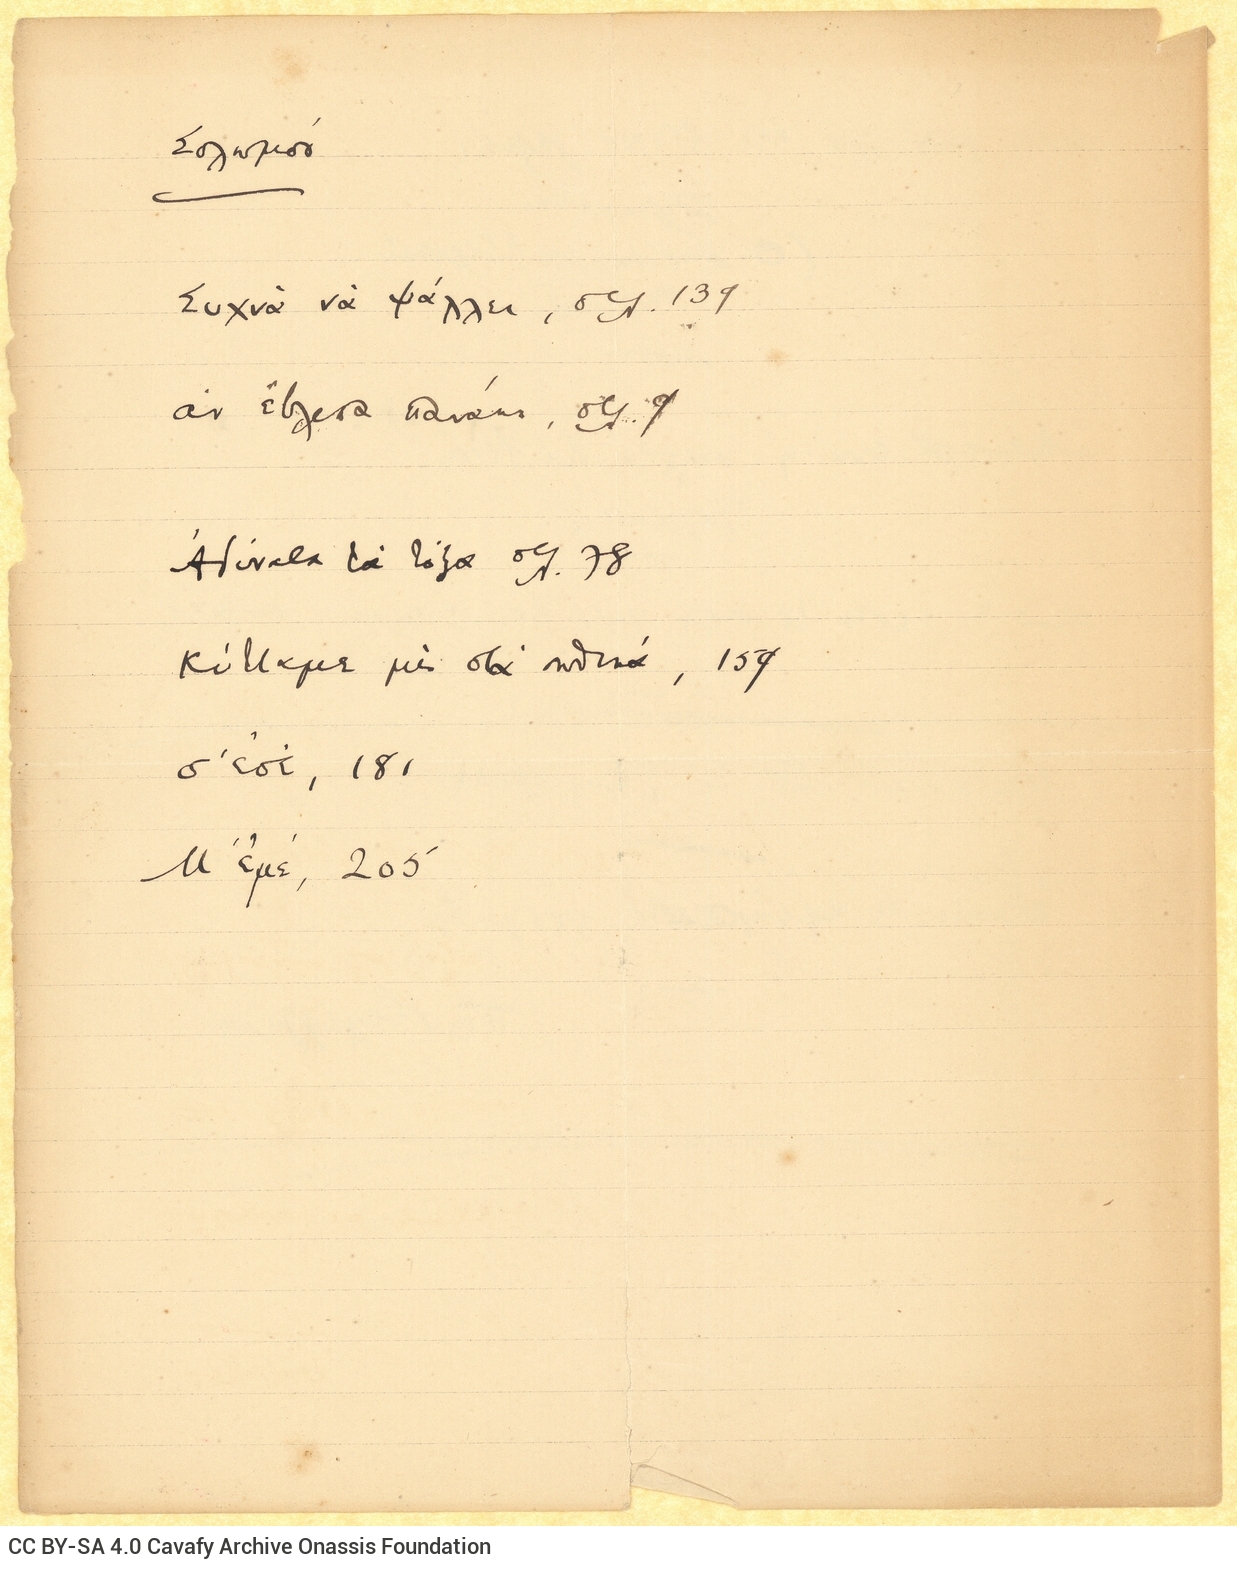 Σολωμού
Συχνὰ νὰ ψάλλει, σελ. 139
ἂν ἔβλεπα πανάκι, σελ. 9
Ἀδύνατα τὰ τόξα σελ. 78
Κύτταμε μὲς στὰ σωθικά, 159
σ' ἐσὲ, 181
Μ' ἐμέ, 205
CC BY-SA 4.0 Cavafy Archive Onassis Foundation